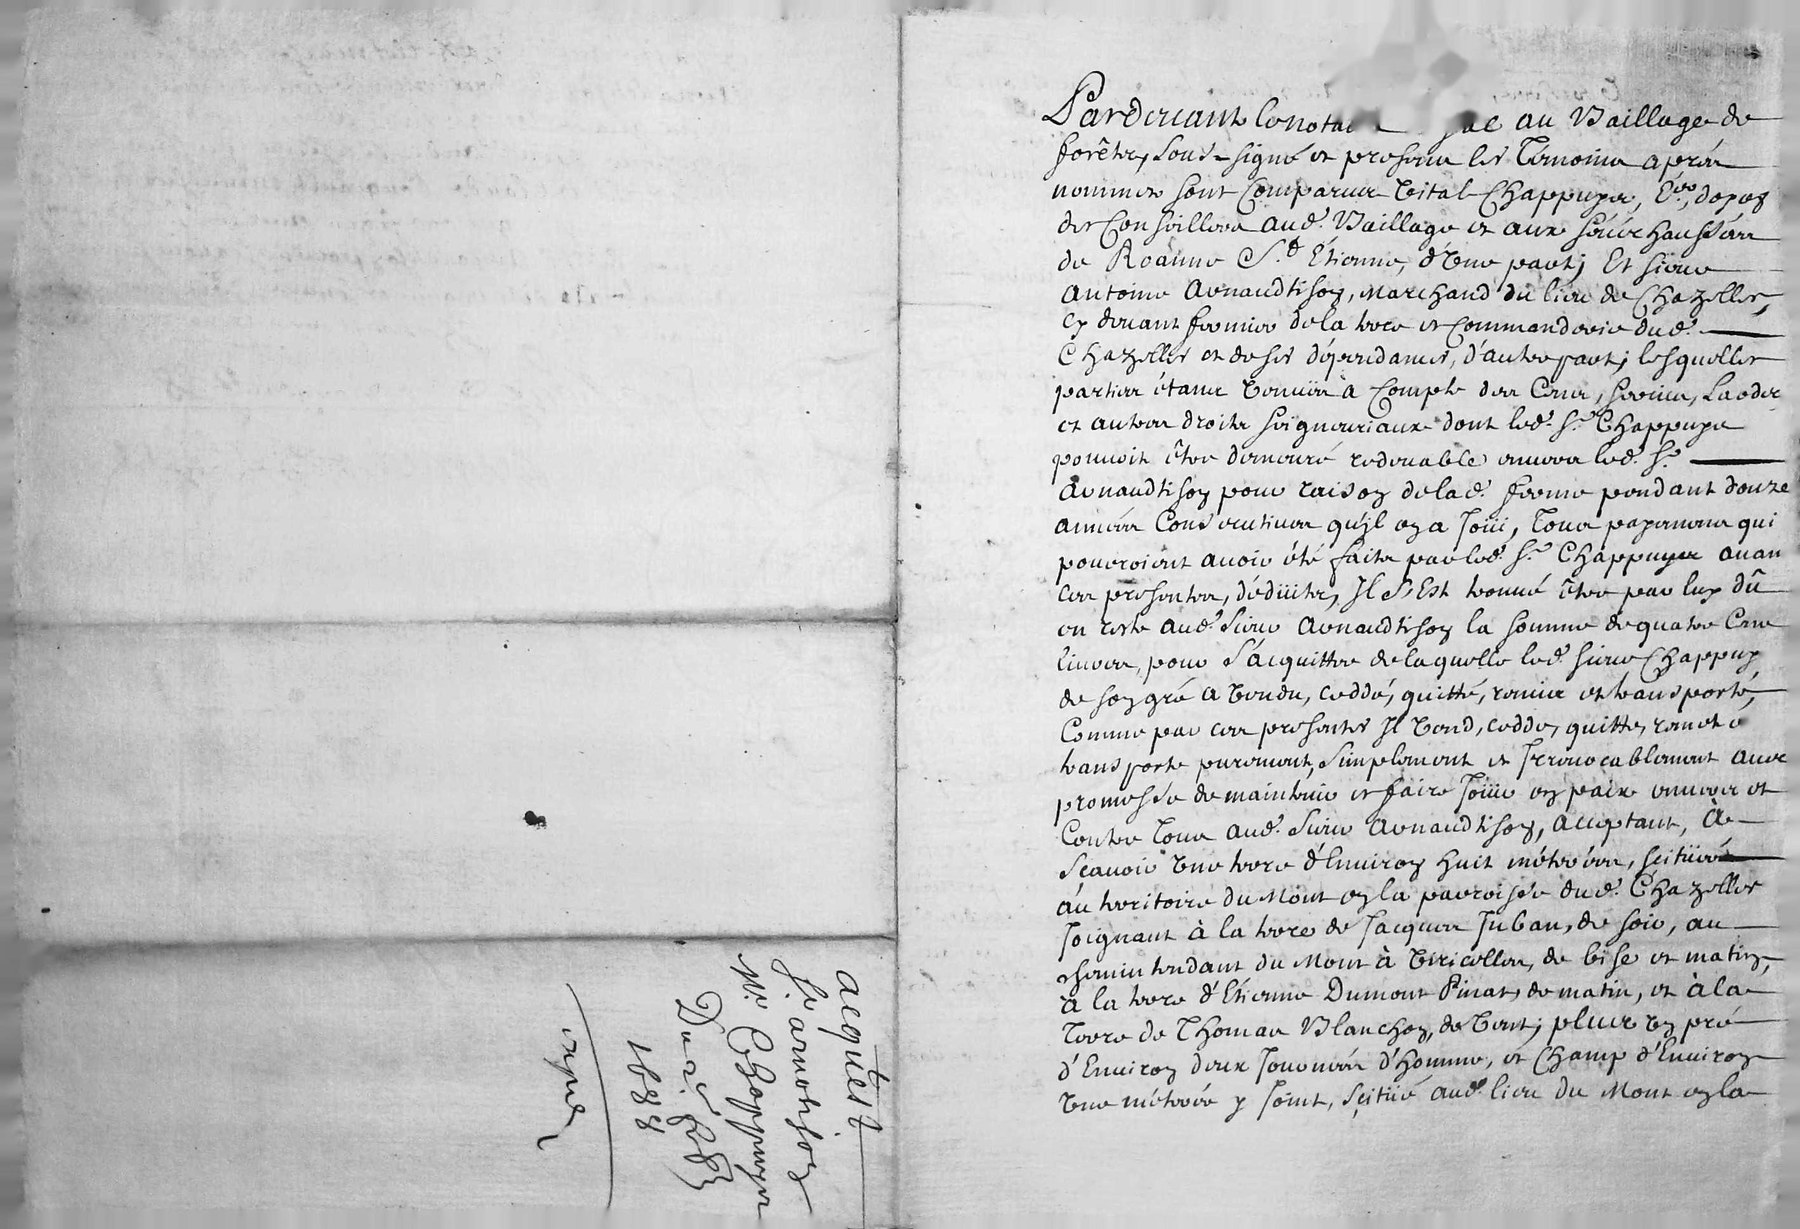 acquiest
Sr arnotizon
Mr Chappuyes
Du 2e
1688
Pardevant le nota au Baillage de
forêtz, sous-signé et presens les Témoins aprés
nommez sont comparus Vital Chappuyes, Éer, doyez
des Conseillers aud. Baillage et aux sénéchaussées
de Roanne St Étienne, d'Une part; Et sieur
Antoine Arnaudtison, Marchand du lieu de Chazelles,
cy devant fermier de la terre et Commanderie dud.
Chazelles et de ses dépendances, d'autre part; lesquelles
parties étant venües à Compte des Cens, servis, Laodz
et autres droits seigneuriaux dont led. Sr Chappuyes
pouvoit être demeuré redevable envers led. Sr
Arnaudtison pour raison de lad. ferme pendant douze
années Consecutives qu'jl en a Joüi, Tous payemens qui
pourroient avoir été faits par led. Sr Chappuyes avan
ces presentes, déduits, Jl s'Est trouvé être par luy dû
en reste aud. Sieur Arnaudtison la somme de quatre Cens
livres, pour s'acquitter de laquelle led. sieur Chappuy
de son gré a Vendu, ceddé, quitté, remis et transporté,
Comme par ces presentes Jl Vend, cedde, quitte, remet e
transporte purement, simplement et Jrrevocablement avec
promesse de maintenir et faire Joüir en paix envers et
Contre Tous aud. Sieur Arnaudtison, acceptant, À
Sçavoir Une terre d'Environ huit métérées, scitüée
au territoire du Mont en la parroisse dud. Chazelles
Joignant à la terre de Jacques Juban, de soir, au
chemin tendant du Mont à Viricelles, de bise et matin,
à la terre d'Etienne Dumont Pinat, de matin, et à la
Terre de Thomas Blanchon, de Vent; plus Un pré
d'Environ deux Journées d'homme, et Champ d'Environ
Une métérée y Joint, scitüé aud. lieu du Mont en la